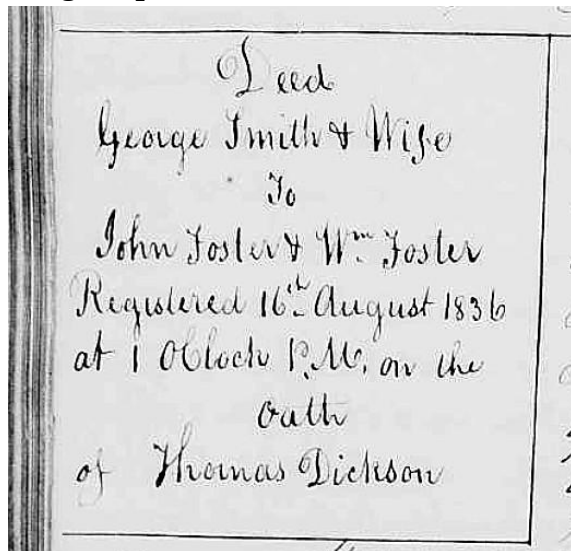 Deed
George Smith & Wife
To
John Foster & Wm. Foster
Registered 16th August 1836
at 1 OClock P.M. on the
Oath
of Thomas Dickson